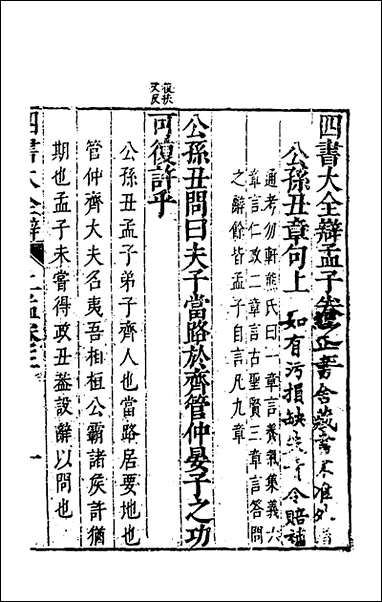 四書大全辯孟子卷之三
公孫丑章句上
通考勿軒熊氏曰一章言養氣集義六
章言仁政二章言古聖賢三章言答問
之辭餘皆孟子自言凡九章
如有污損缺失 令賠補
公孫丑問曰夫子當路於齊管仲晏子之功
可復許乎
復扶
又反
公孫丑孟子弟子齊人也當路居要地也
管仲齊大夫名夷吾相桓公霸諸侯許猶
期也孟子未嘗得政丑蓋設辭以問也
四書大全辯
一